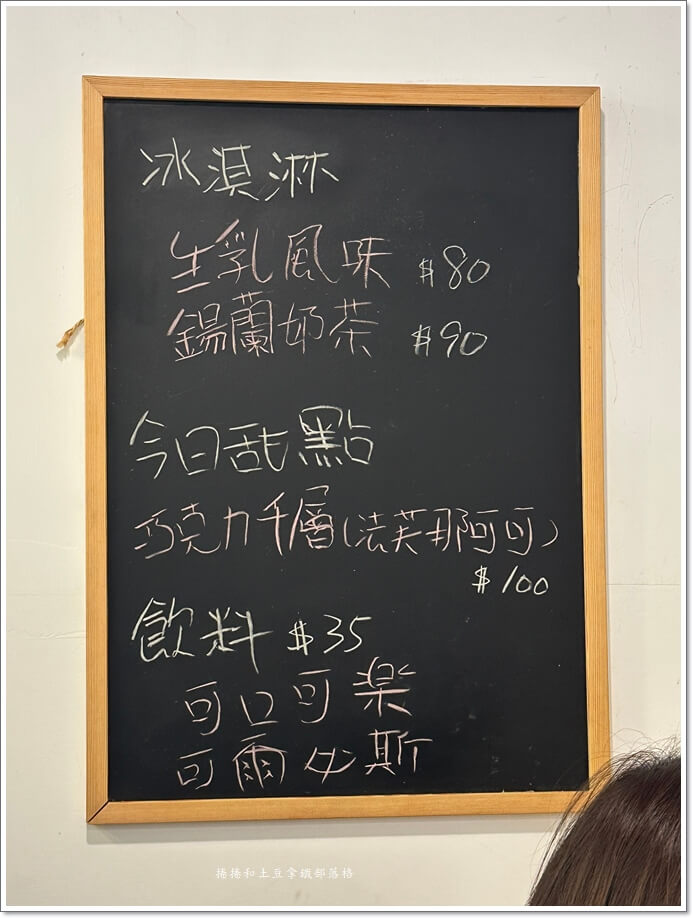 冰淇淋
生乳風味 $80
錫蘭奶茶 $90
今日甜點
巧克力千層(法芙那阿可)
$100
飲料 $35
可口可楽
可爾必斯
捲捲和土豆拿鐵部落格